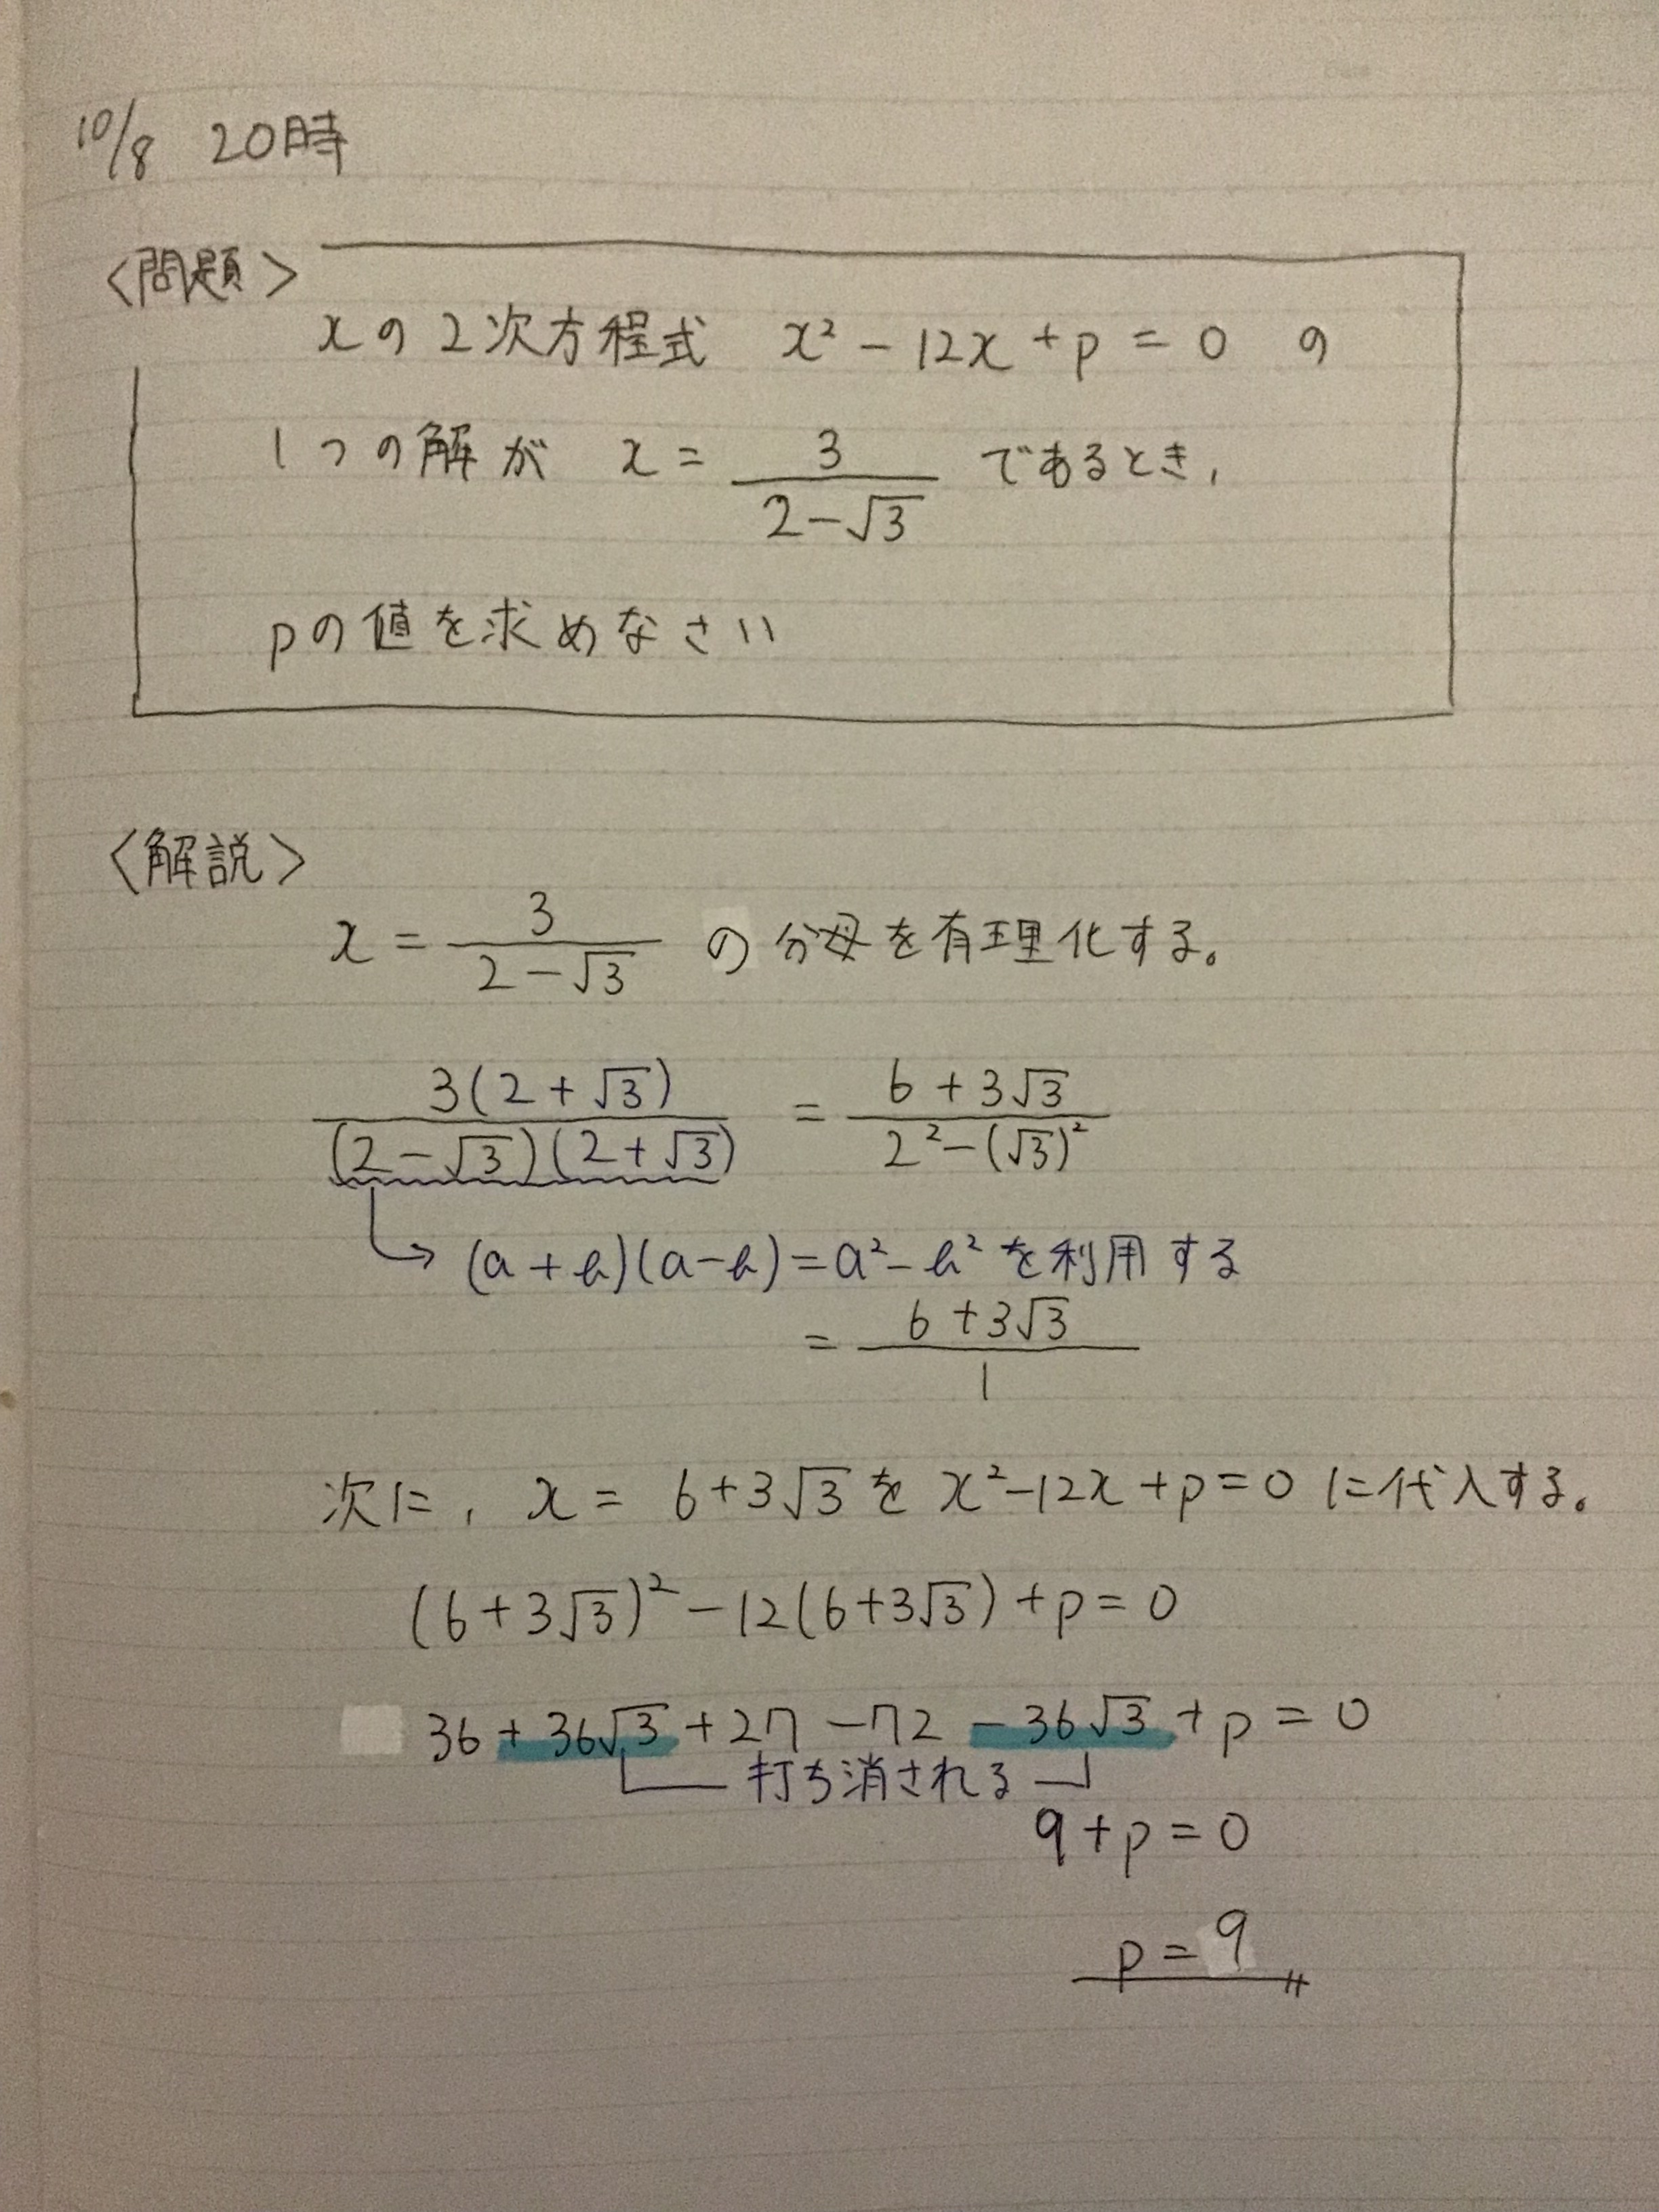 10/8 20時
<問題>
xの2次方程式 x² - 12x + p = 0 の
1つの解が x = 3/(2-√3) であるとき,
pの値を求めなさい
<解説>
x = 3/(2-√3) の分母を有理化する。
3(2+√3)/((2-√3)(2+√3)) = (6+3√3)/(2²-(√3)²)
→ (a+b)(a-b)=a²-b² を利用する
= (6+3√3)/1
次に, x = 6+3√3 を x²-12x+p=0 に代入する。
(6+3√3)²-12(6+3√3)+p=0
36+36√3+27-72-36√3+p=0
打ち消される
9+p=0
p=9